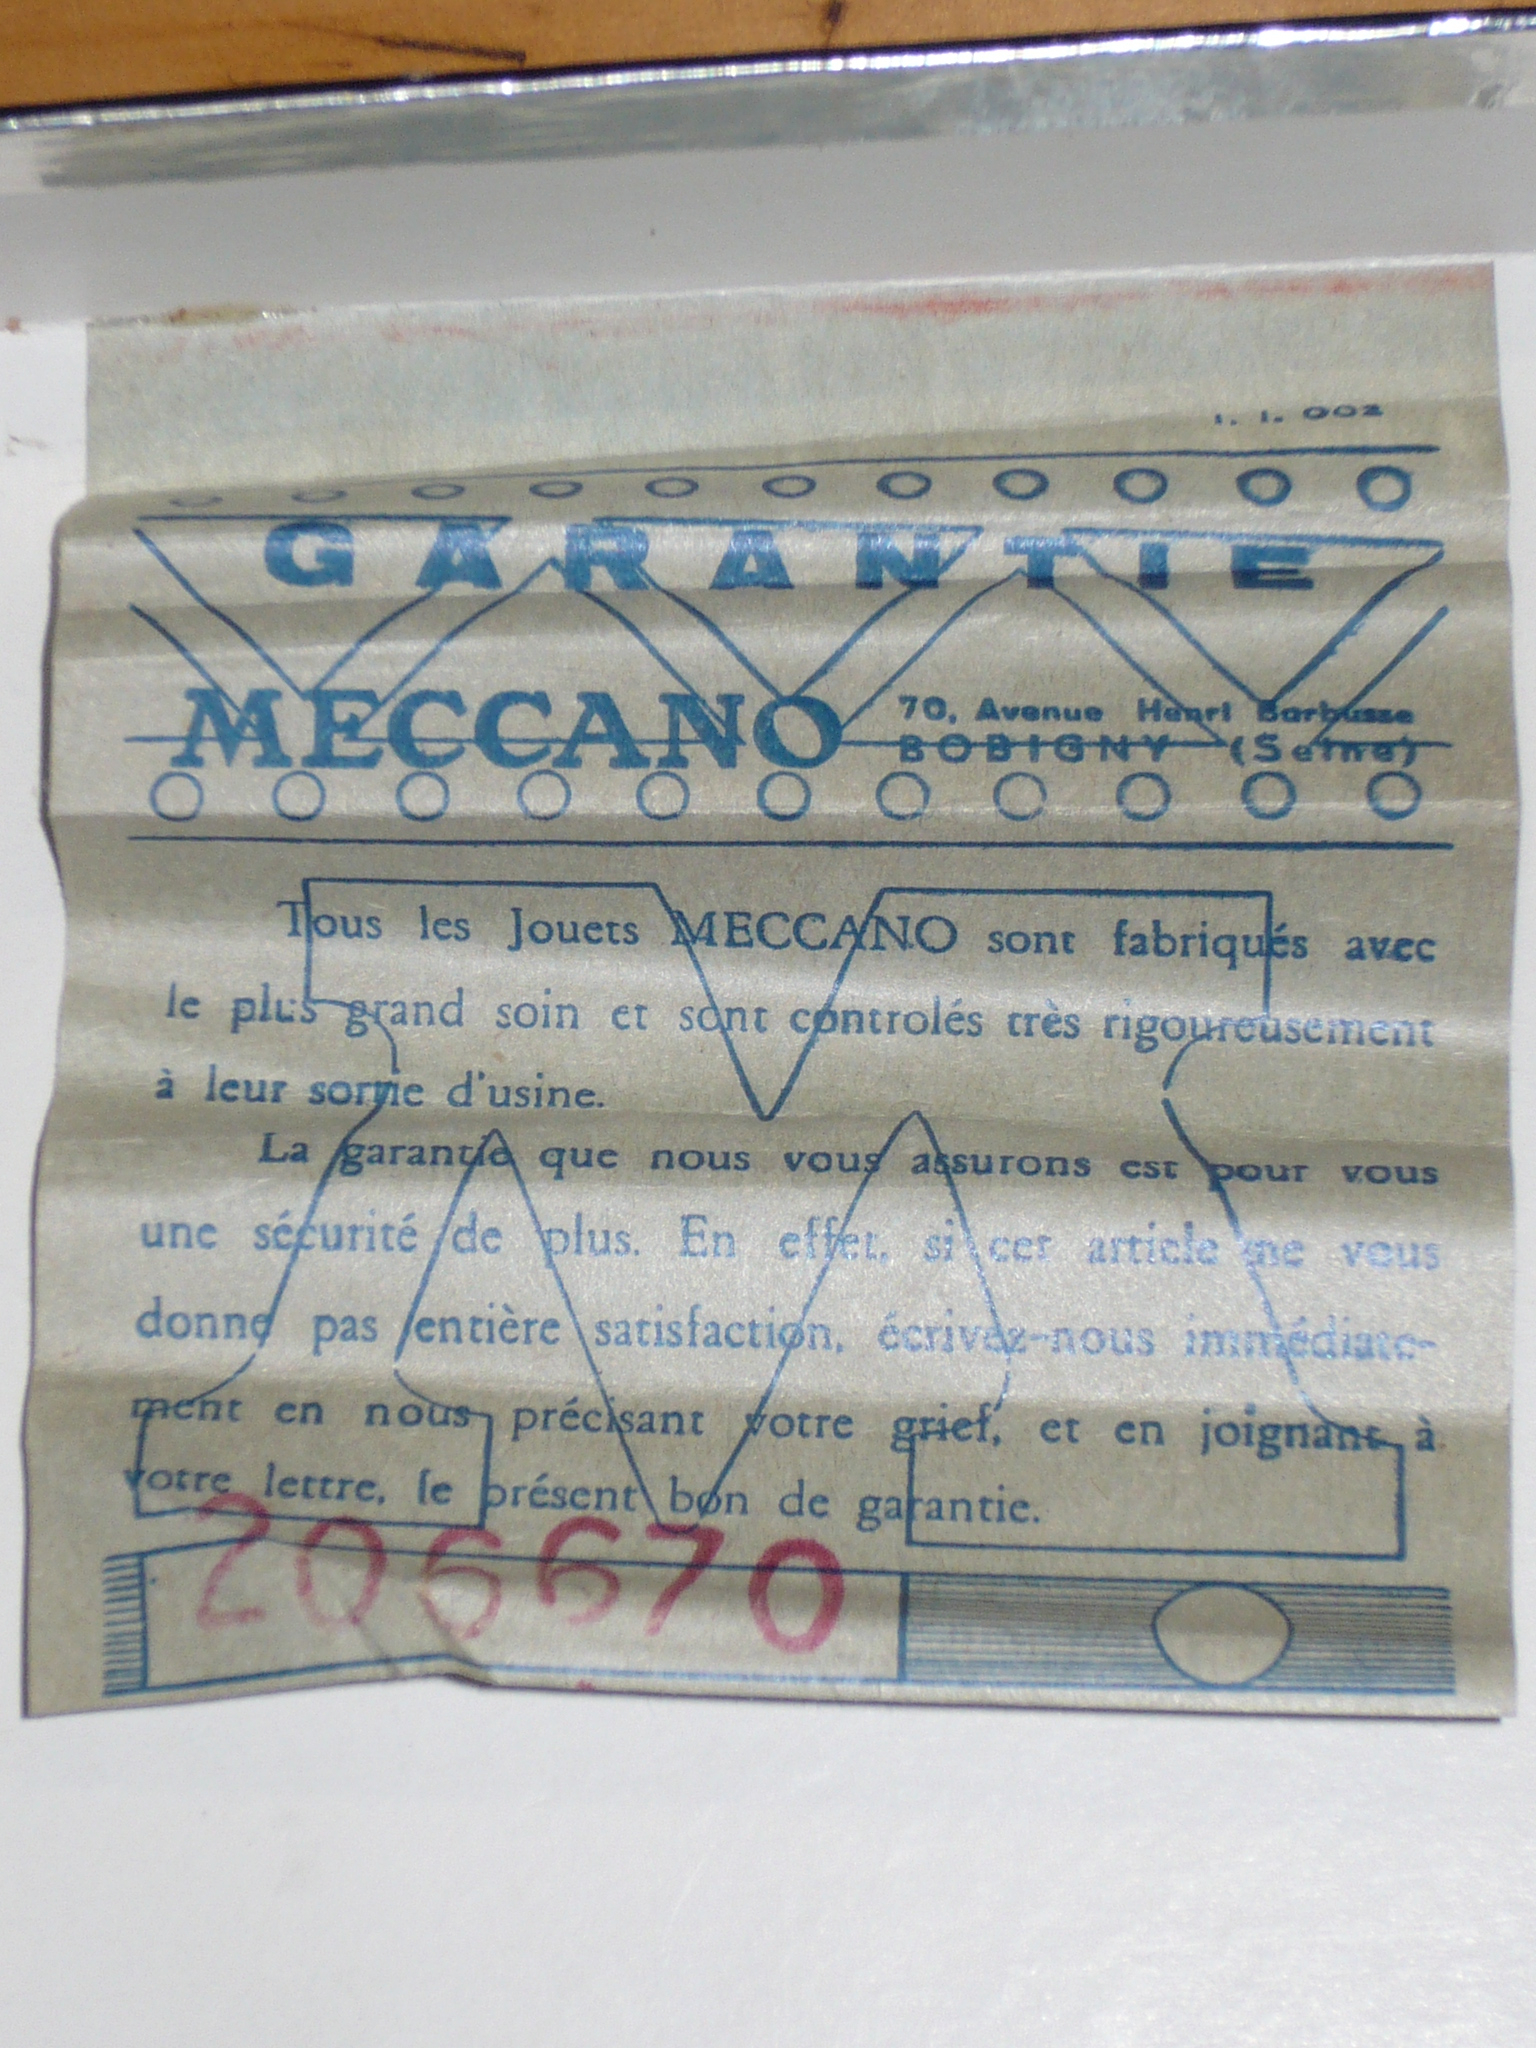 1. 1. 002
GARANTIE
MECCANO
70, Avenue Henri Barbusse
BOBIGNY (Seine)
Tous les Jouets MECCANO sont fabriqués avec
le plus grand soin et sont controlés très rigoureusement
à leur sortie d'usine.
La garantie que nous vous assurons est pour vous
une sécurité de plus. En effet, si cet article ne vous
donne pas entière satisfaction, écrivez-nous immédiate-
ment en nous précisant votre grief, et en joignant à
votre lettre, le présent bon de garantie.
206670